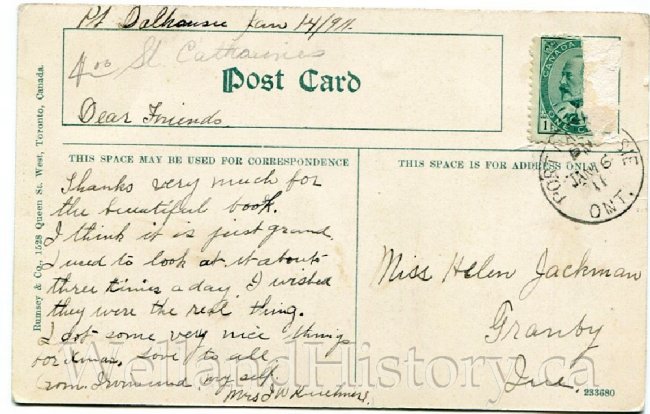 Pt Dalhousie Jan 14/911
St. Catharines
Post Card
Dear Friends
CANADA
1
ONE CE
PORT DALHOUSIE
PM
JAN 16
11
ONT.
THIS SPACE MAY BE USED FOR CORRESPONDENCE
THIS SPACE IS FOR ADDRESS ONLY
Thanks very much for
the beautiful book.
I think it is just grand
I used to look at it about
three times a day. I wished
they were the real thing.
I got some very nice things
for Xmas, love to all
from my self
Mrs J W
Miss Helen Jackman
Granby
Que.
Rumsey & Co., 1528 Queen St. West, Toronto, Canada.
WellandHistory.ca
233680